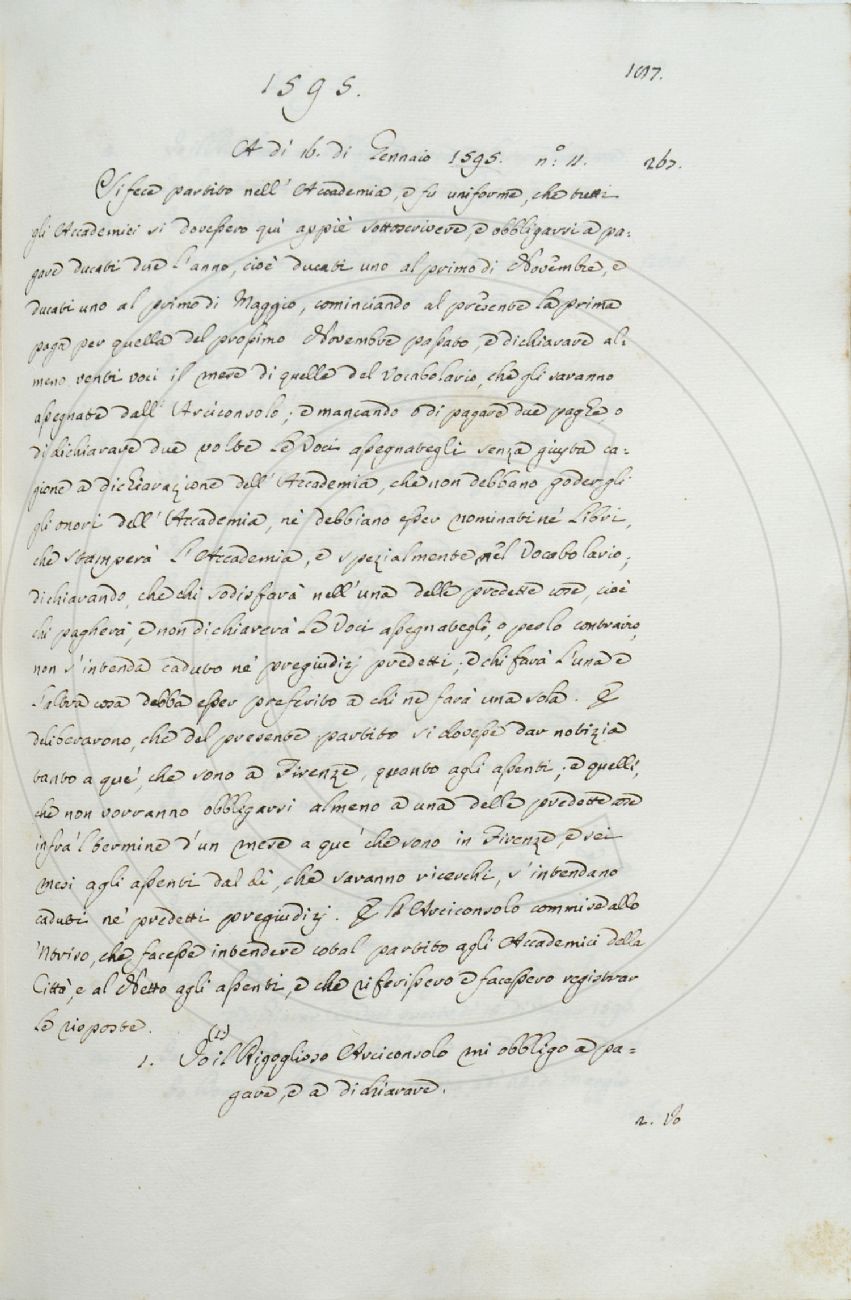 1595.
A dì 16. di Gennaio 1595. n.º 11. 267.
Si fece partito nell' Accademia, e fù uniforme, che tutti
gli Accademici si dovessero quì appiè sottoscrivere, e obbligarsi a pa:
gare ducati due l'anno, cioè ducati uno al primo di Novembre, e
ducati uno al primo di Maggio, cominciando al presente la prima
paga per quella del prossimo Novembre passato, e dichiarare al:
meno venti voci il mese di quelle del Vocabolario, che gli saranno
assegnate dall' Arciconsolo; e mancando o di pagare due paghe, o
di dichiarare due volte le Voci assegnategli senza giusta ca:
gione a dichiarazione dell' Accademia, che non debbano godergli
gli onori dell' Accademia, nè debbiano esser nominati nè Libri,
che stamperà l'Accademia, e spezialmente nel Vocabolario;
dichiarando, che chi sodisfarà nell'una delle predette cose, cioè
chi pagherà, e non dichiarerà le Voci assegnategli, o per lo contrario,
non s'intenda caduto ne' pregiudizj predetti; e chi farà l'una e
l'altra cosa debba esser preferito a chi ne farà una sola. E
deliberarono, che del presente partito si dovesse dar notizia
tanto a que', che sono a Firenze, quanto agli assenti; e quelli,
che non vorranno obbligarsi almeno a una delle predette cose
infra 'l termine d'un mese a que' che sono in Firenze, e sei
mesi agli assenti dal dì, che saranno ricerchi, s'intendano
caduti ne' predetti pregiudizj. E lo Arciconsolo commise allo
'Ntriso, che facesse intendere cotal partito agli Accademici della
Città, e al Netto agli assenti, e che riferissero e facessero registrar
le risposte.
1. Io (1) il Rigoglioso Arciconsolo mi obbligo a pa=
gare, e a dichiarare.
2. Io